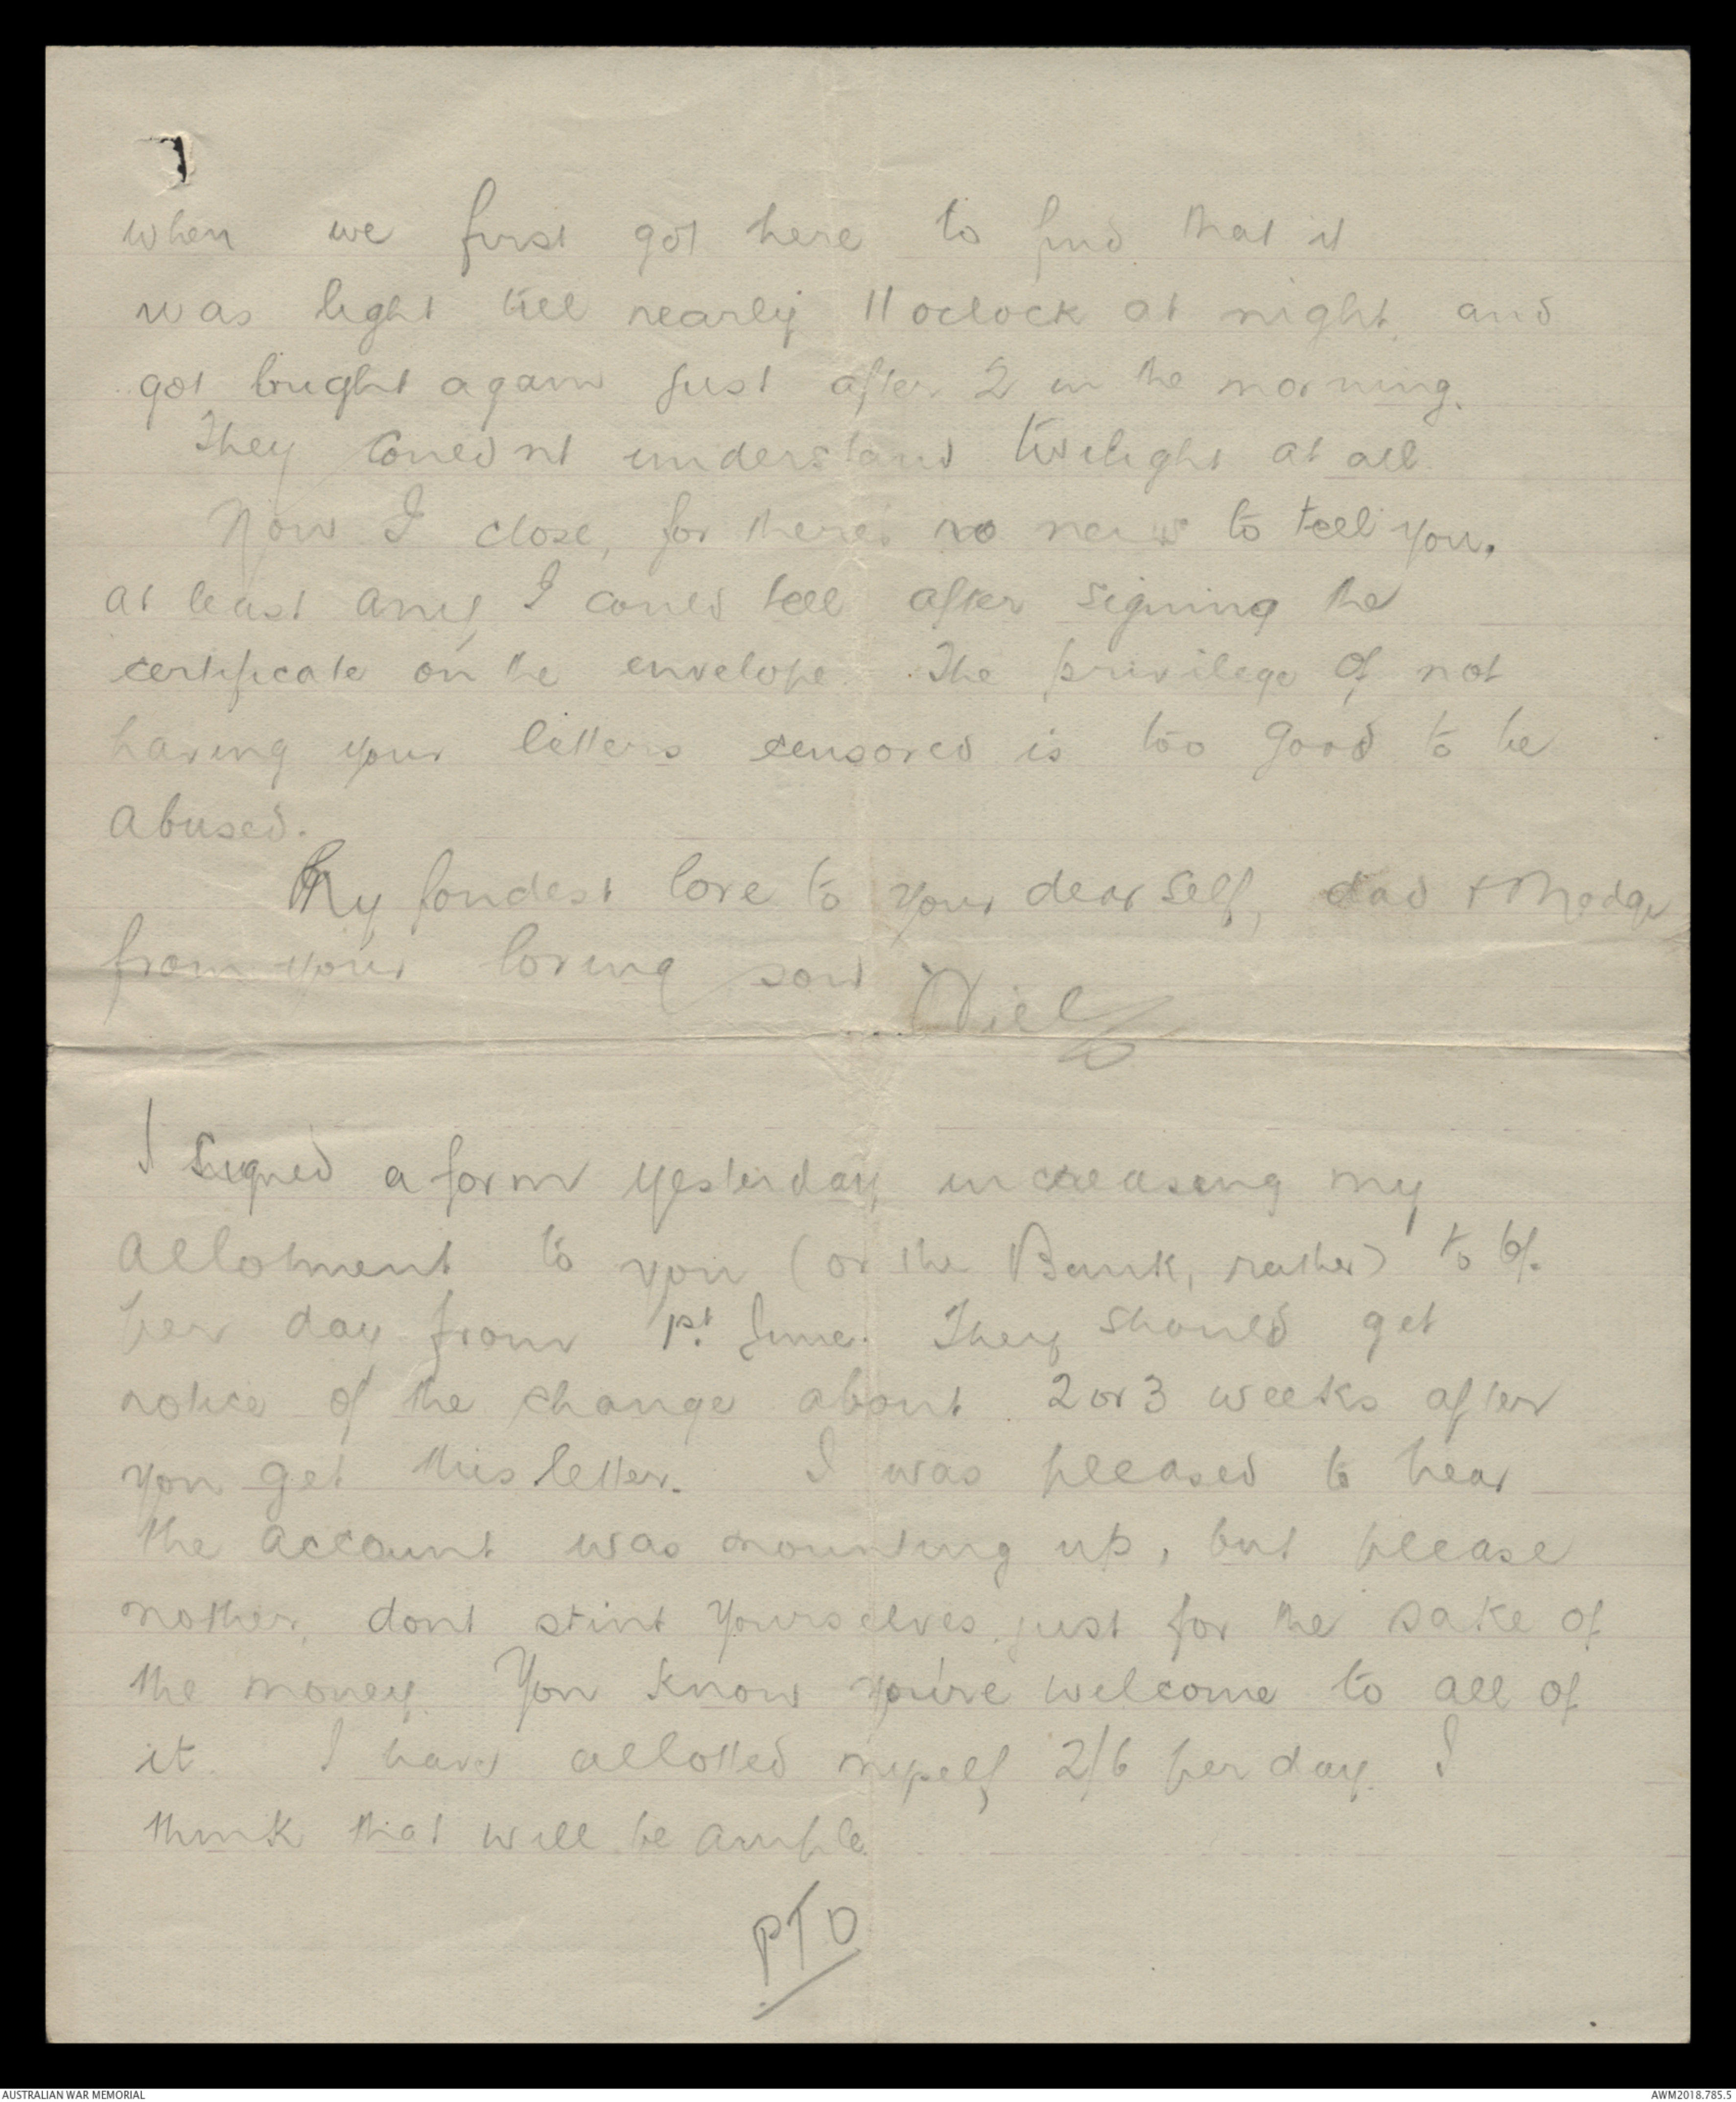 when we first got here to find that it
was light till nearly 11 oclock at night, and
got bright again just after 2 in the morning.
They couldnt understand twilight at all.
Now I close, for there's no news to tell you,
at least any I could tell after signing the
certificate on the envelope. The privilege of not
having your letters censored is too good to be
abused.
My fondest love to your dear self, dad & Madge
from your loving son
I signed a form yesterday increasing my
allotment to you (or the Bank, rather) to 6/-
per day from 1st June. They should get
notice of the change about 2 or 3 weeks after
you get this letter. I was pleased to hear
the account was mounting up, but please
mother, dont stint yourselves just for the sake of
the money. You know you're welcome to all of
it. I have allotted myself 2/6 per day. I
think that will be ample.
PTO
AUSTRALIAN WAR MEMORIAL
AWM2018.785.5